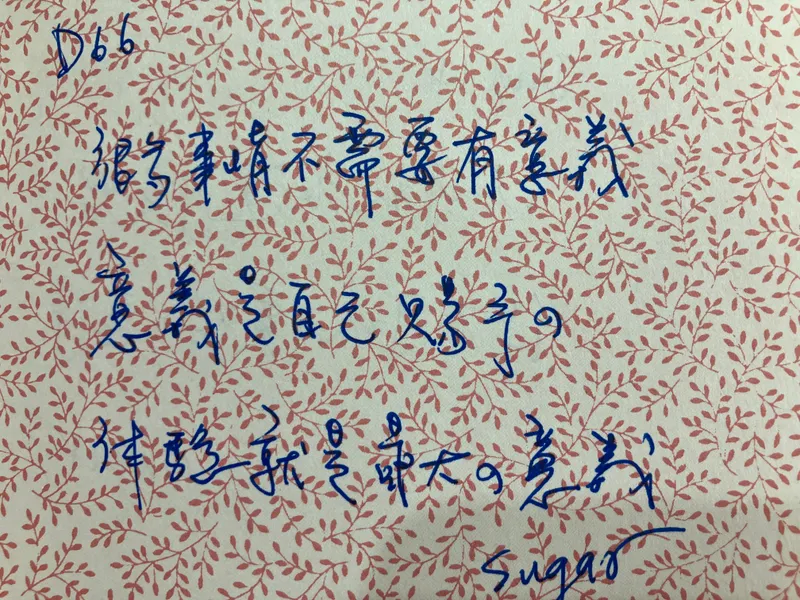 D66
很多事情不需要有意義
意義是自己賜予の
体驗就是最大の意義
sugar